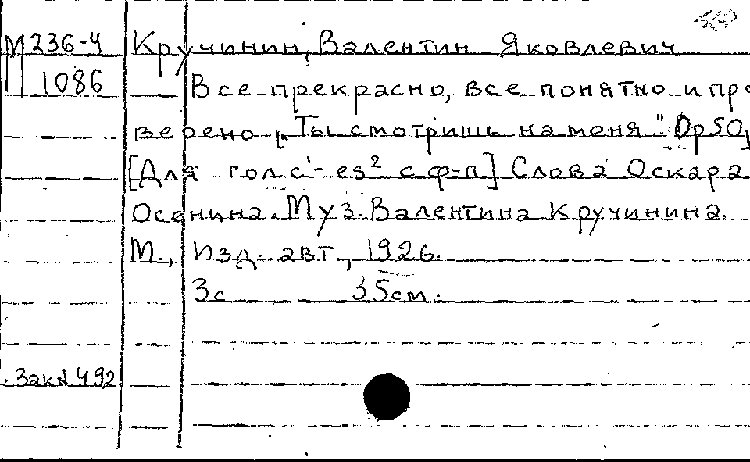 М 236-4 Кручинин, Валентин Яковлевич
1086 Все прекрасно, все понятно и про
верено „Ты смотришь на меня" Op 50,
[Для гол. c¹- es² с ф-п] Слова Оскара
Осенина. Муз. Валентина Кручинина.
М., Изд. авт., 1926.
3с 35см.
Зак. 492